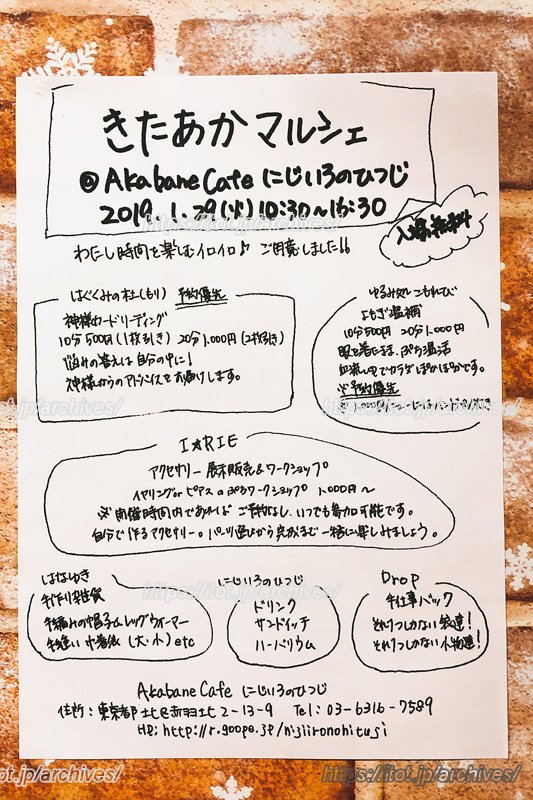 きたあかマルシェ
@ Akabane Cafe にじいろのひつじ
2019. 1. 29(火) 10:30〜16:30
入場無料
わたし時間を楽しむイロイロ♪ ご用意しました!!
はぐくみの杜(もり) 予約優先
神様カードリーディング
10分500円(1枚引き) 20分1,000円(2枚引き)
悩みの答えは自分の中に!
神様からのアドバイスをお届けします。
ゆるみ処 こもれび
よもぎ温補
10分500円 20分1,000円
服を着たまま、ぷち温活
血流UPでカラダぽかぽかです。
※予約優先
I★RIE
アクセサリー 展示販売&ワークショップ
イヤリングorピアスのぷちワークショップ 1,000円〜
※開催時間内であれば ご予約なし、いつでも参加可能です。
自分で作るアクセサリー。パーツ選びから完成まで一緒に楽しみましょう。
はなゆき
手作り雑貨
手編みの帽子、レッグウォーマー
手縫い 巾着袋(大・小) etc
にじいろのひつじ
ドリンク
サンドイッチ
ハーバリウム
Drop
手仕事バック
それ1つしかない 袋達!
それ1つしかない 小物達!
Akabane Cafe にじいろのひつじ
住所:東京都北区赤羽北2-13-9 Tel:03-6316-7589
HP; http://r.goope.jp/nijiironohituji
https://itot.jp/archives/